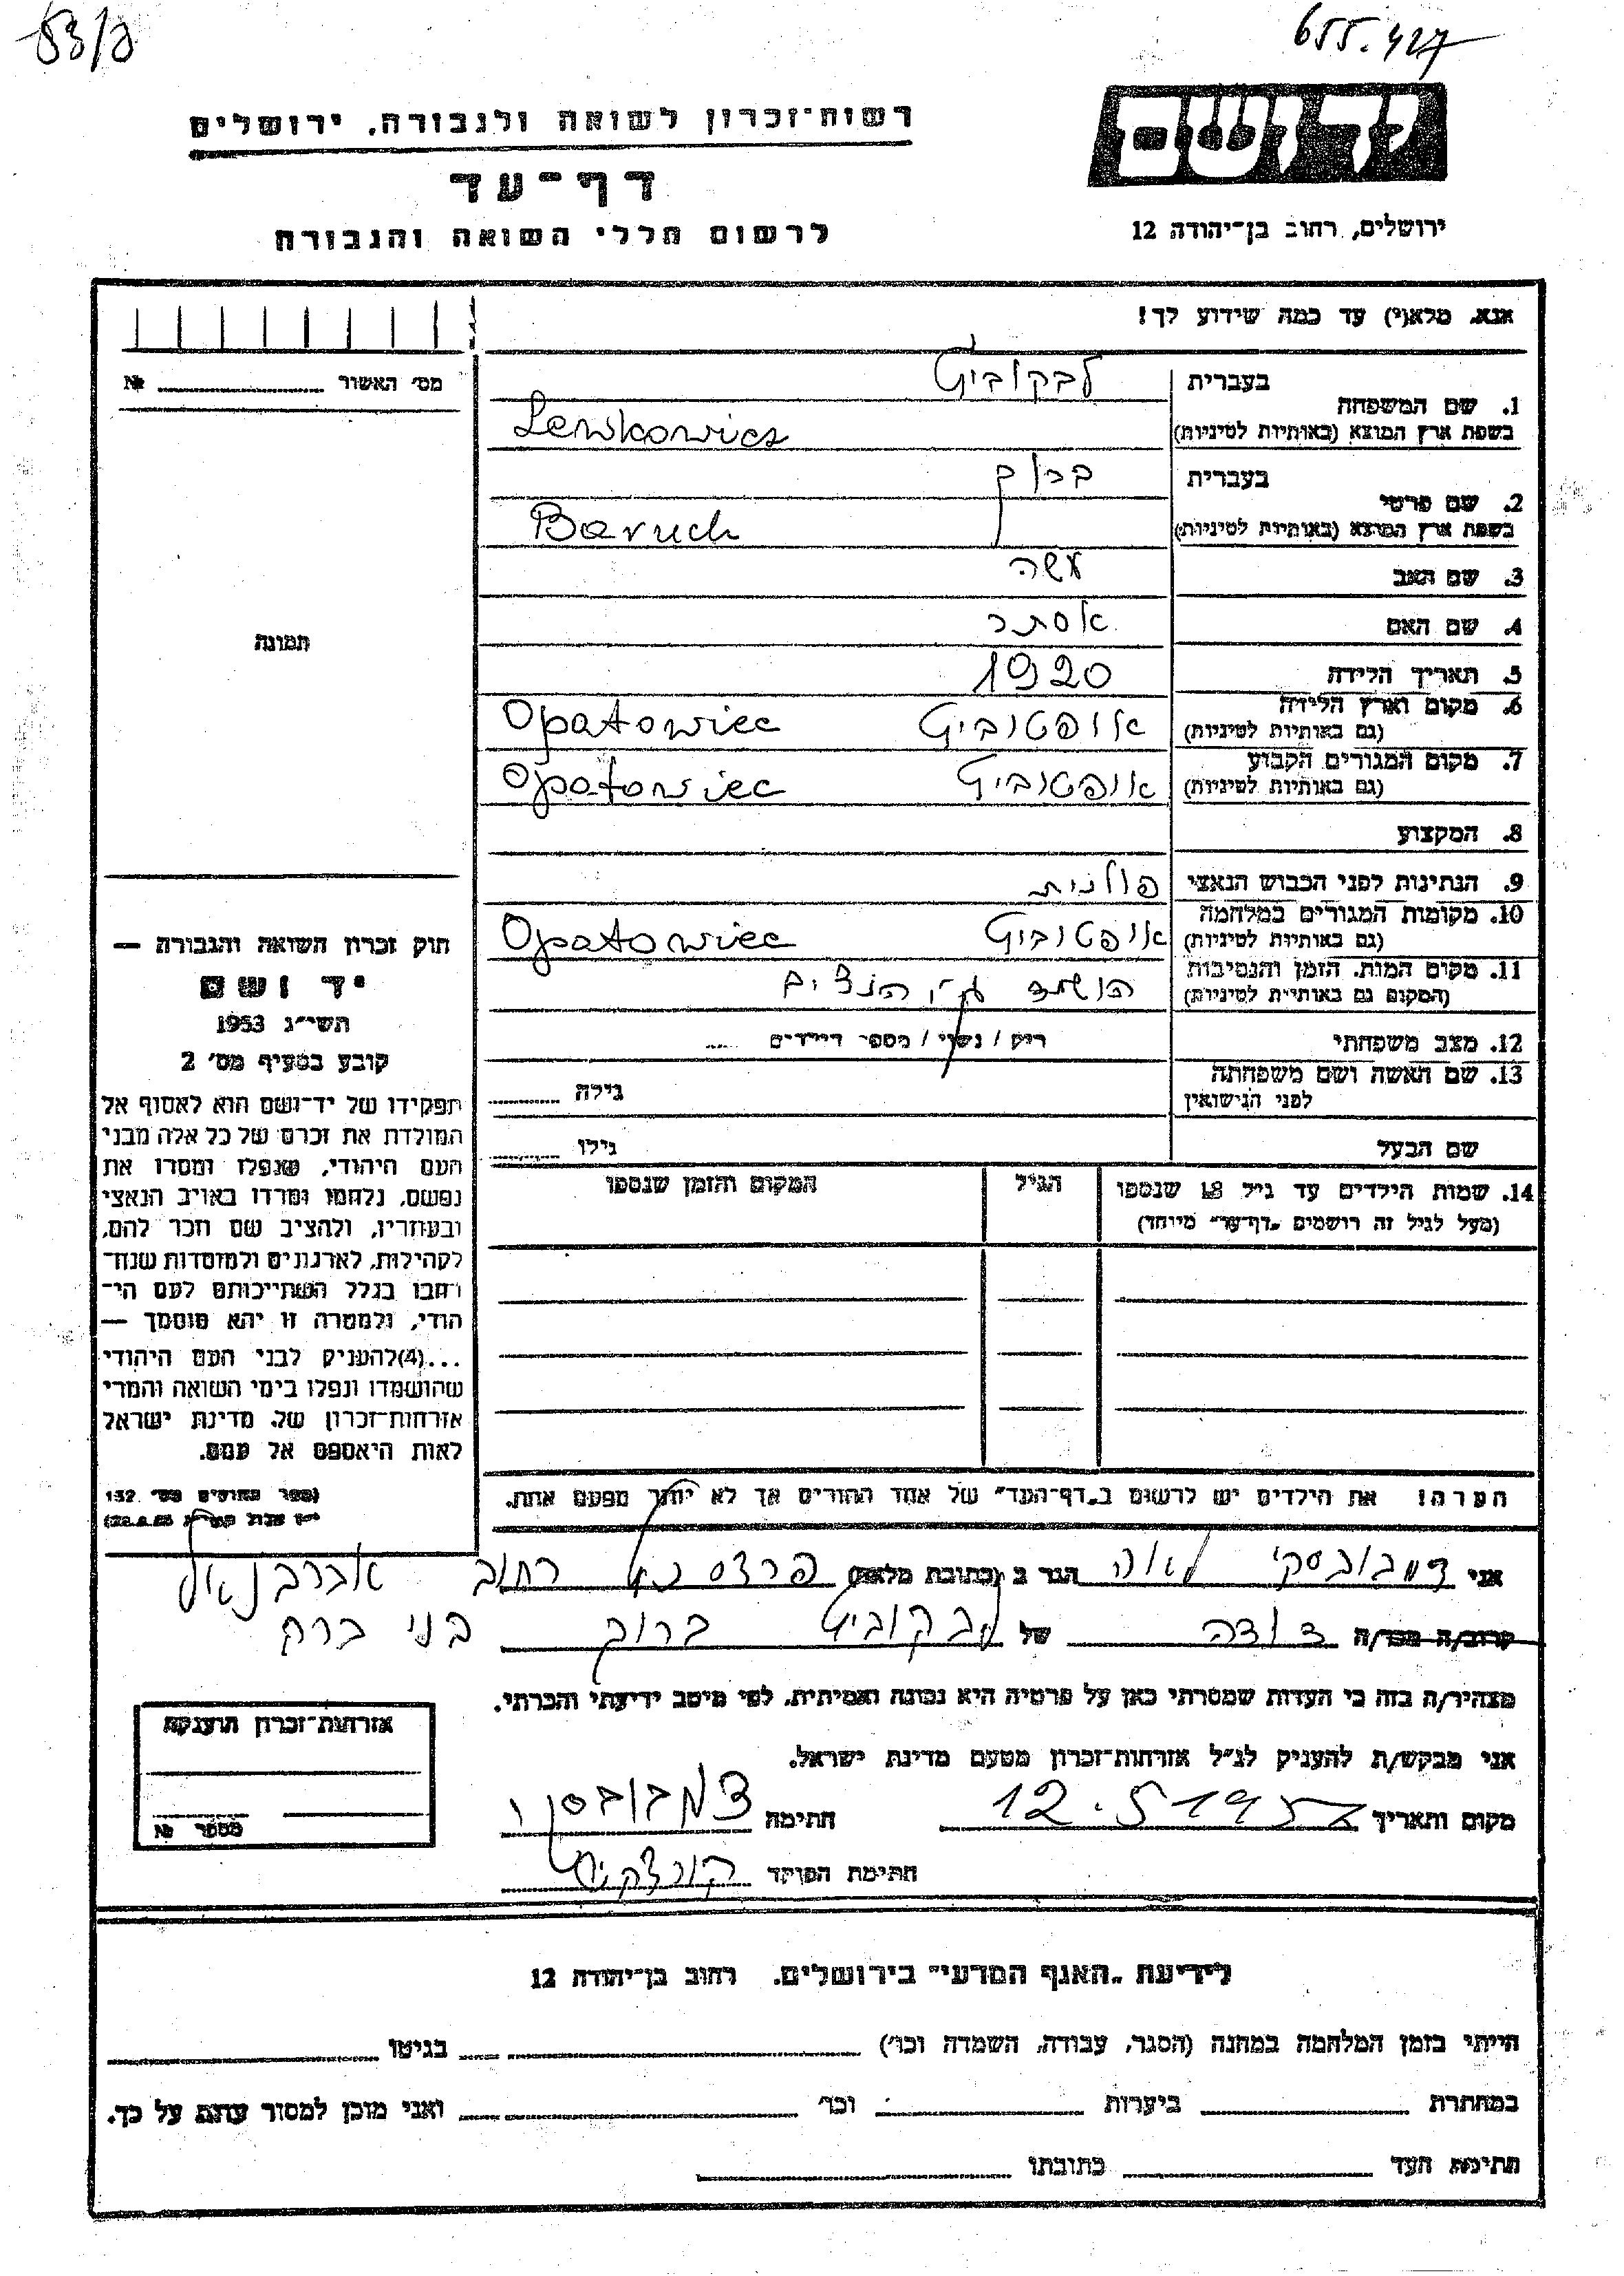 655.427
רשות-זכרון לשואה ולגבורה, ירושלים
דף-עד
לרשום חללי השואה והגבורה
ירושלים, רחוב בן-יהודה 12
אנא, מלא(י) עד כמה שידוע לך!
מס' האשור №
1. שם המשפחה
בעברית לבקוביץ
בשפת ארץ המוצא (באותיות לטיניות) Lewkowicz
2. שם פרטי
בעברית ברוך
בשפת ארץ המוצא (באותיות לטיניות) Baruch
3. שם האב
4. שם האם אסתר
5. תאריך הלידה 1920
6. מקום וארץ הלידה
(גם באותיות לטיניות) אופטוביץ Opatowiec
7. מקום המגורים הקבוע
(גם באותיות לטיניות) אופטוביץ Opatowiec
8. המקצוע
9. הנתינות לפני הכבוש הנאצי פולנית
10. מקומות המגורים במלחמה
(גם באותיות לטיניות) אופטוביץ Opatowiec
11. מקום המות, הזמן והנסיבות
(המקום גם באותיות לטיניות) הושמד ע״י הנצים
12. מצב משפחתי רוק / נשוי / מספר הילדים
13. שם האשה ושם משפחתה
לפני הנישואין גילה
שם הבעל גילו
14. שמות הילדים עד גיל 18 שנספו הגיל המקום והזמן שנספו
(מעל לגיל זה רושמים „דף-עד" מיוחד)
תמונה
חוק זכרון השואה והגבורה —
יד ושם
תשי״ג 1953
קובע בסעיף מס' 2
תפקידו של יד-ושם הוא לאסוף אל
המולדת את זכרם של כל אלה מבני
העם היהודי, שנפלו ומסרו את
נפשם, נלחמו ומרדו באויב הנאצי
ובעוזריו, ולהציב שם וזכר להם,
לקהילות, לארגונים ולמוסדות שנח־
רבו בגלל השתייכותם לעם הי־
הודי, ולמטרה זו יהא מוסמך —
...(4) להעניק לבני העם היהודי
שהושמדו ונפלו בימי השואה והמרי
אזרחות-זכרון של מדינת ישראל
לאות היאספם אל עמם.
(ספר החוקים מס' 132
הערה! את הילדים יש לרשום ב„דף-העד" של אחד ההורים אך לא יותר מפעם אחת.
אני דמבובסקי לאה הגר ב (כתובת מלאה) פרדס כץ רחוב אברבנאל
קרוב/ה מכר/ה דודה של לבקוביץ ברוך בני ברק
מצהיר/ה בזה כי העדות שמסרתי כאן על פרטיה היא נכונה ואמיתית, לפי מיטב ידיעתי והכרתי.
אני מבקש/ת להעניק לנ״ל אזרחות-זכרון מטעם מדינת ישראל.
מקום ותאריך 12.5 חתימה
חתימת הפוקד
אזרחות-זכרון הוענקה
מספר №
לידיעת „האגף המדעי" בירושלים, רחוב בן-יהודה 12
הייתי בזמן המלחמה במחנה (הסגר, עבודה, השמדה וכו') בגיטו
במחתרת ביערות וכו' ואני מוכן למסור עדות על כך.
חתימת העד כתובתו